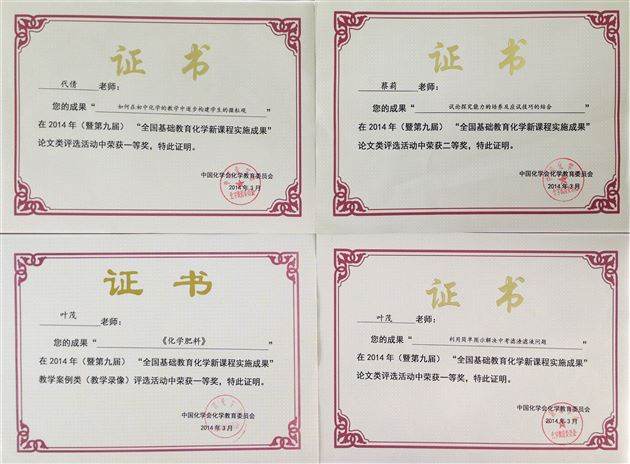 证书
代倩 老师：
您的成果“如何在初中化学的教学中逐步构建学生的微粒观”
在2014年（暨第九届）“全国基础教育化学新课程实施成果”
论文类评选活动中荣获一等奖，特此证明。
中国化学会化学教育委员会
2014年3月
证书
蔡莉 老师：
您的成果“试论探究能力的培养及应试技巧的结合”
在2014年（暨第九届）“全国基础教育化学新课程实施成果”
论文类评选活动中荣获二等奖，特此证明。
中国化学会化学教育委员会
2014年3月
证书
叶茂 老师：
您的成果“《化学肥料》”
在2014年（暨第九届）“全国基础教育化学新课程实施成果”
教学案例类（教学录像）评选活动中荣获一等奖，特此证明。
中国化学会化学教育委员会
2014年3月
证书
叶茂 老师：
您的成果“利用简单图示解决中考滤渣滤液问题”
在2014年（暨第九届）“全国基础教育化学新课程实施成果”
论文类评选活动中荣获一等奖，特此证明。
中国化学会化学教育委员会
2014年3月